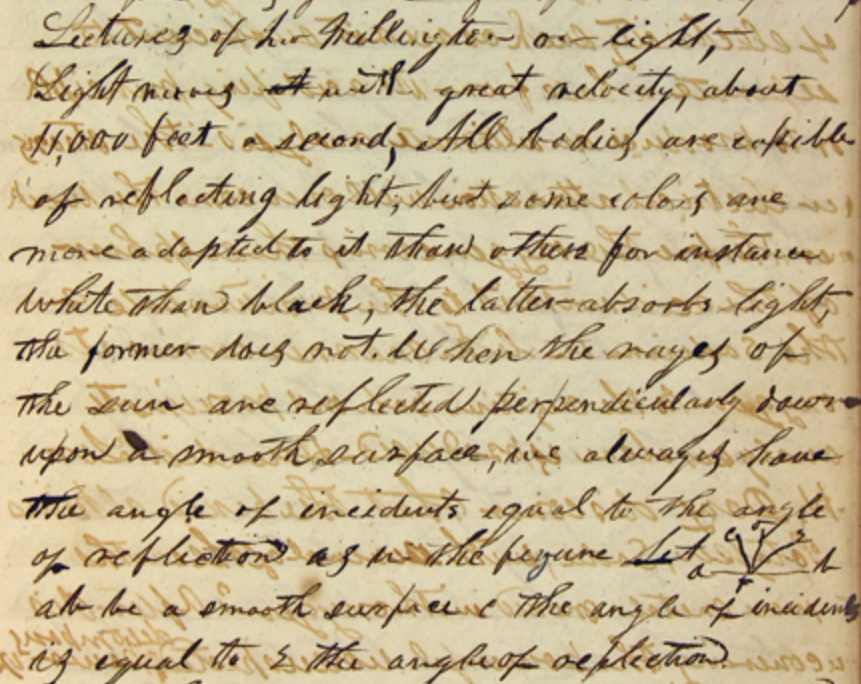 Lectures of Mr Millington on light,
Light moves at with great velocity, about
11,000 feet a second, All bodies are capible
of reflecting light, but some colors are
more adapted to it than others for instance
white than black, the latter absorbs light,
the former does not. When the rayes of
the sun are reflected perpendicularly down
upon a smooth surface, we always have
the angle of incidents equal to the angle
of reflection as in the figure Let
c 2
a b
ab be a smooth surface c the angle of incidents
is equal to 2 the angle of reflection.